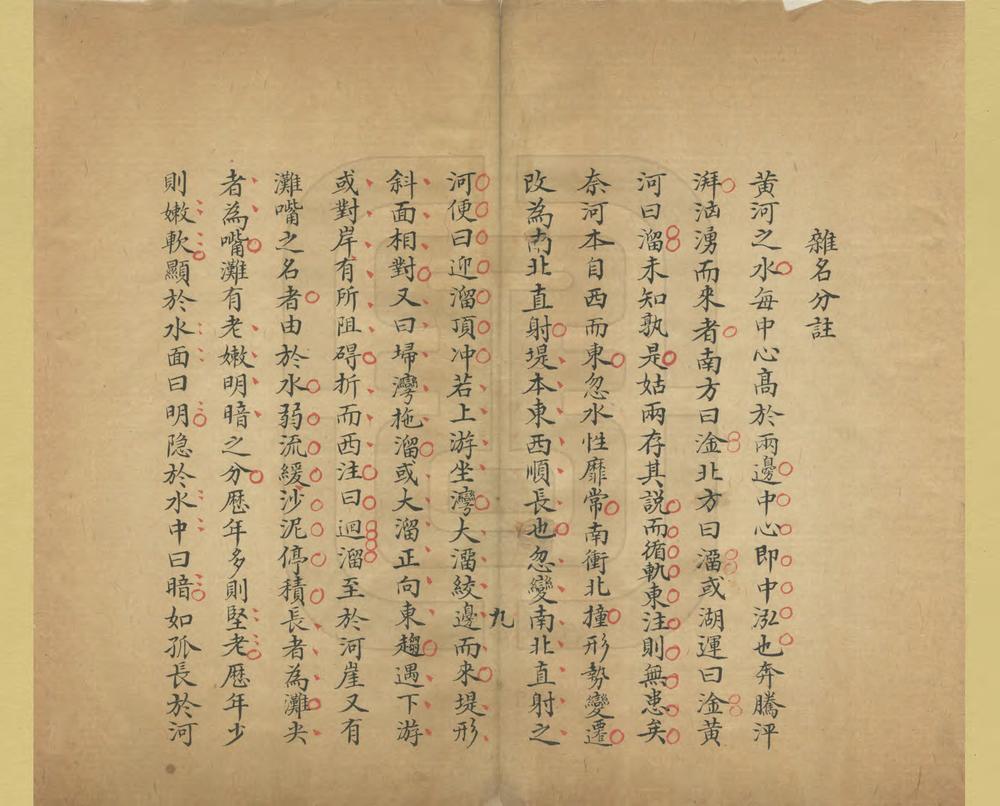 雜名分註
黃河之水每中心高於兩邊中心即中泓也奔騰泙
湃汹湧而來者南方曰淦北方曰溜或湖運曰淦黃
河曰溜未知孰是姑兩存其說而循軌東注則無患矣
奈河本自西而東忽水性靡常南衝北撞形勢變遷
改為南北直射堤本東西順長也忽變南北直射之
九
河便曰迎溜頂冲若上游坐灣大溜絞邊而來堤形
斜面相對又曰埽灣拖溜或大溜正向東趨遇下游
或對岸有所阻碍折而西注曰迴溜至於河崖又有
灘嘴之名者由於水弱流緩沙泥停積長者為灘尖
者為嘴灘有老嫩明暗之分歷年多則堅老歷年少
則嫩軟顯於水面曰明隱於水中曰暗如孤長於河